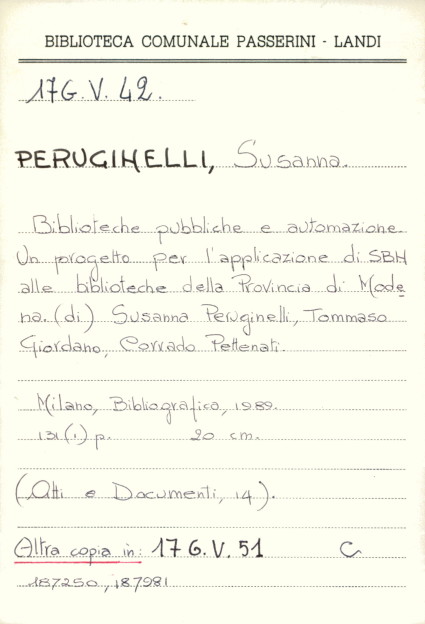 BIBLIOTECA COMUNALE PASSERINI - LANDI
17G.V.42.
PERUGINELLI, Susanna.
Biblioteche pubbliche e automazione.
Un progetto per l'applicazione di SBN
alle biblioteche della Provincia di Mode
na. (di) Susanna Peruginelli, Tommaso
Giordano, Corrado Pettenati.
Milano, Bibliografica, 1989.
131(1) p. 20 cm.
(Atti e Documenti, 14).
Altra copia in: 17 G.V.51 C
187250, 187981